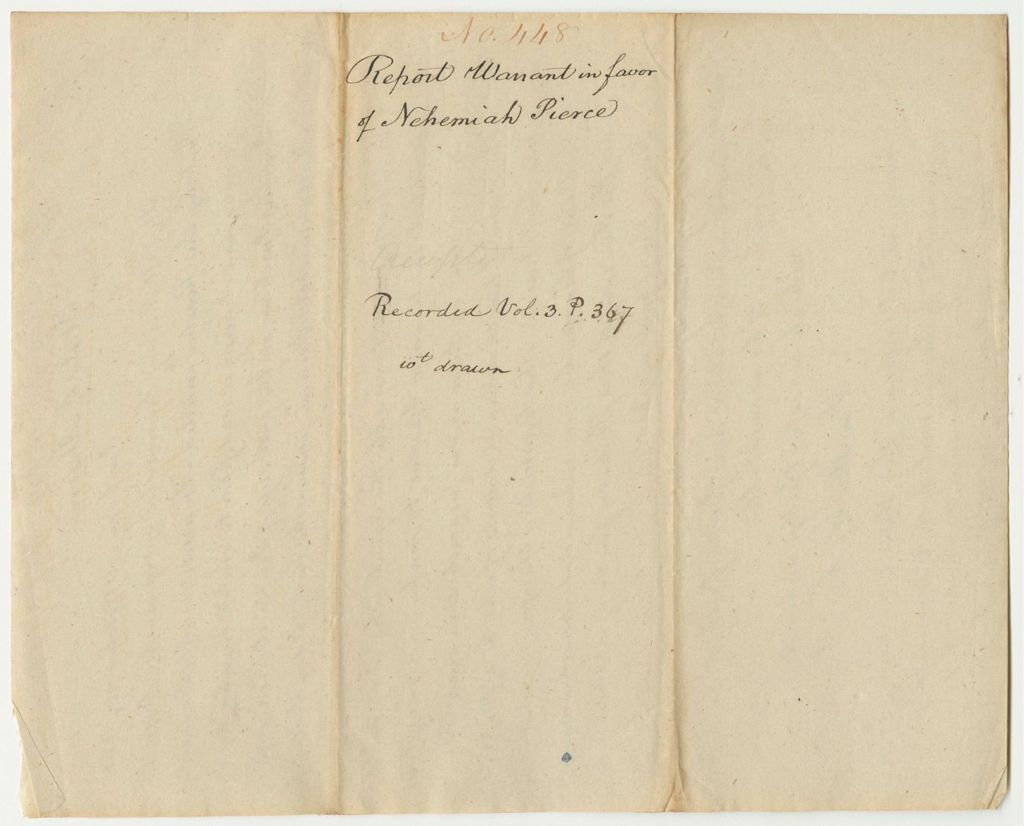 No. 448
Report Warrant in favor
of Nehemiah Pierce
Recorded Vol. 3. P. 367
wt drawn